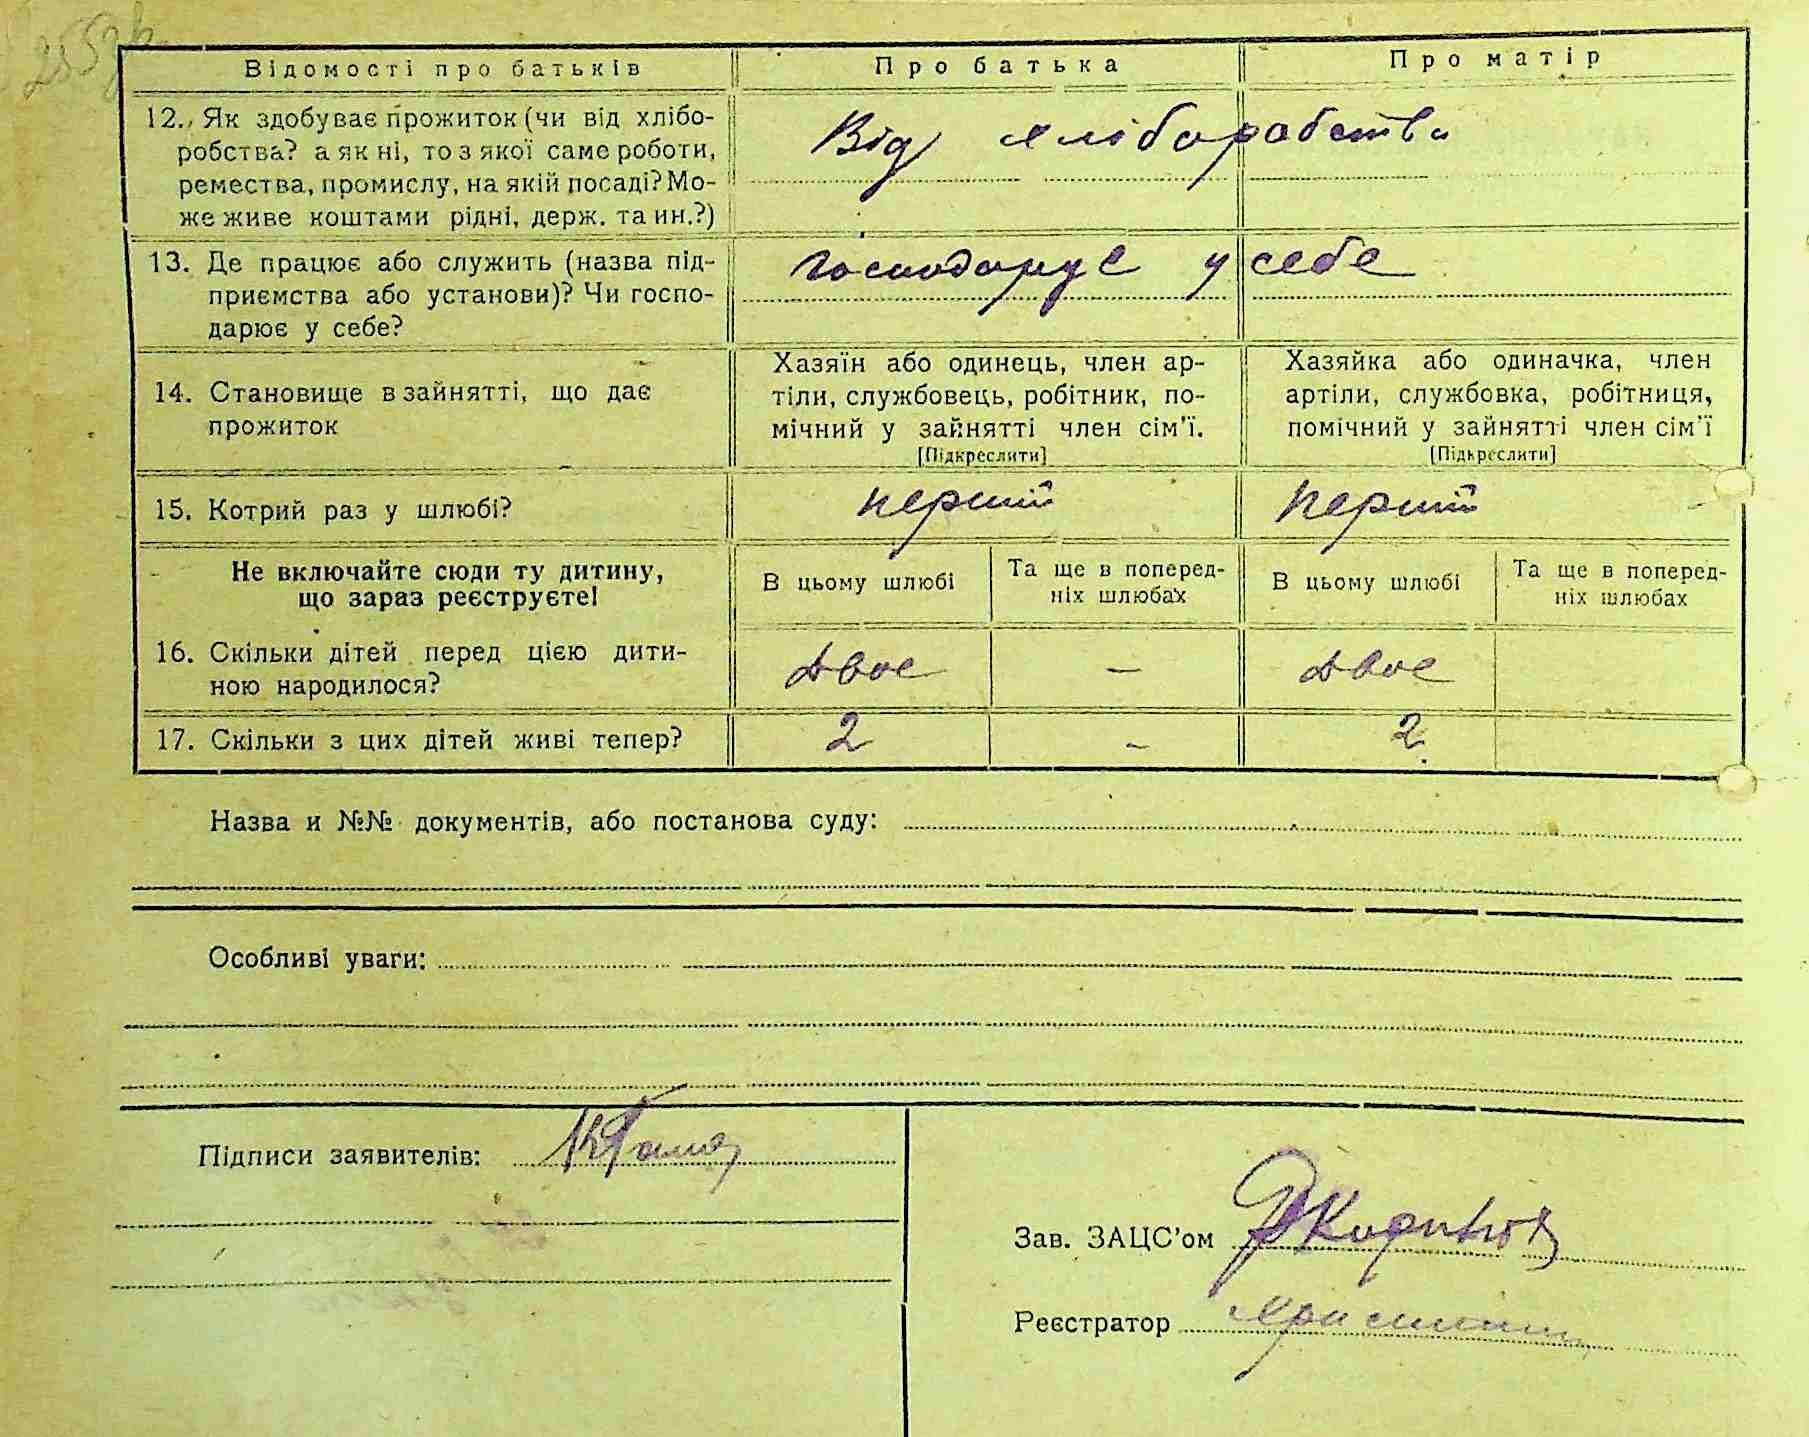 Відомості про батьків Про батька Про матір
12. Як здобуває прожиток (чи від хлібо-
робства? а як ні, то з якої саме роботи,
ремества, промислу, на якій посаді? Мо-
же живе коштами рідні, держ. та ин.?)
Від хліборобства
13. Де працює або служить (назва під-
приємства або установи)? Чи госпо-
дарює у себе?
господарує у себе
14. Становище в зайнятті, що дає
прожиток
Хазяїн або одинець, член ар-
тіли, службовець, робітник, по-
мічний у зайнятті член сім'ї.
[Підкреслити]
Хазяйка або одиначка, член
артіли, службовка, робітниця,
помічний у зайнятті член сім'ї
[Підкреслити]
15. Котрий раз у шлюбі? перший перший
Не включайте сюди ту дитину,
що зараз реєструєте!
В цьому шлюбі
Та ще в поперед-
ніх шлюбах
В цьому шлюбі
Та ще в поперед-
ніх шлюбах
16. Скільки дітей перед цією дити-
ною народилося?
двоє – двоє
17. Скільки з цих дітей живі тепер? 2 – 2
Назва и №№ документів, або постанова суду:
Особливі уваги:
Підписи заявителів:
Зав. ЗАЦС'ом
Реєстратор